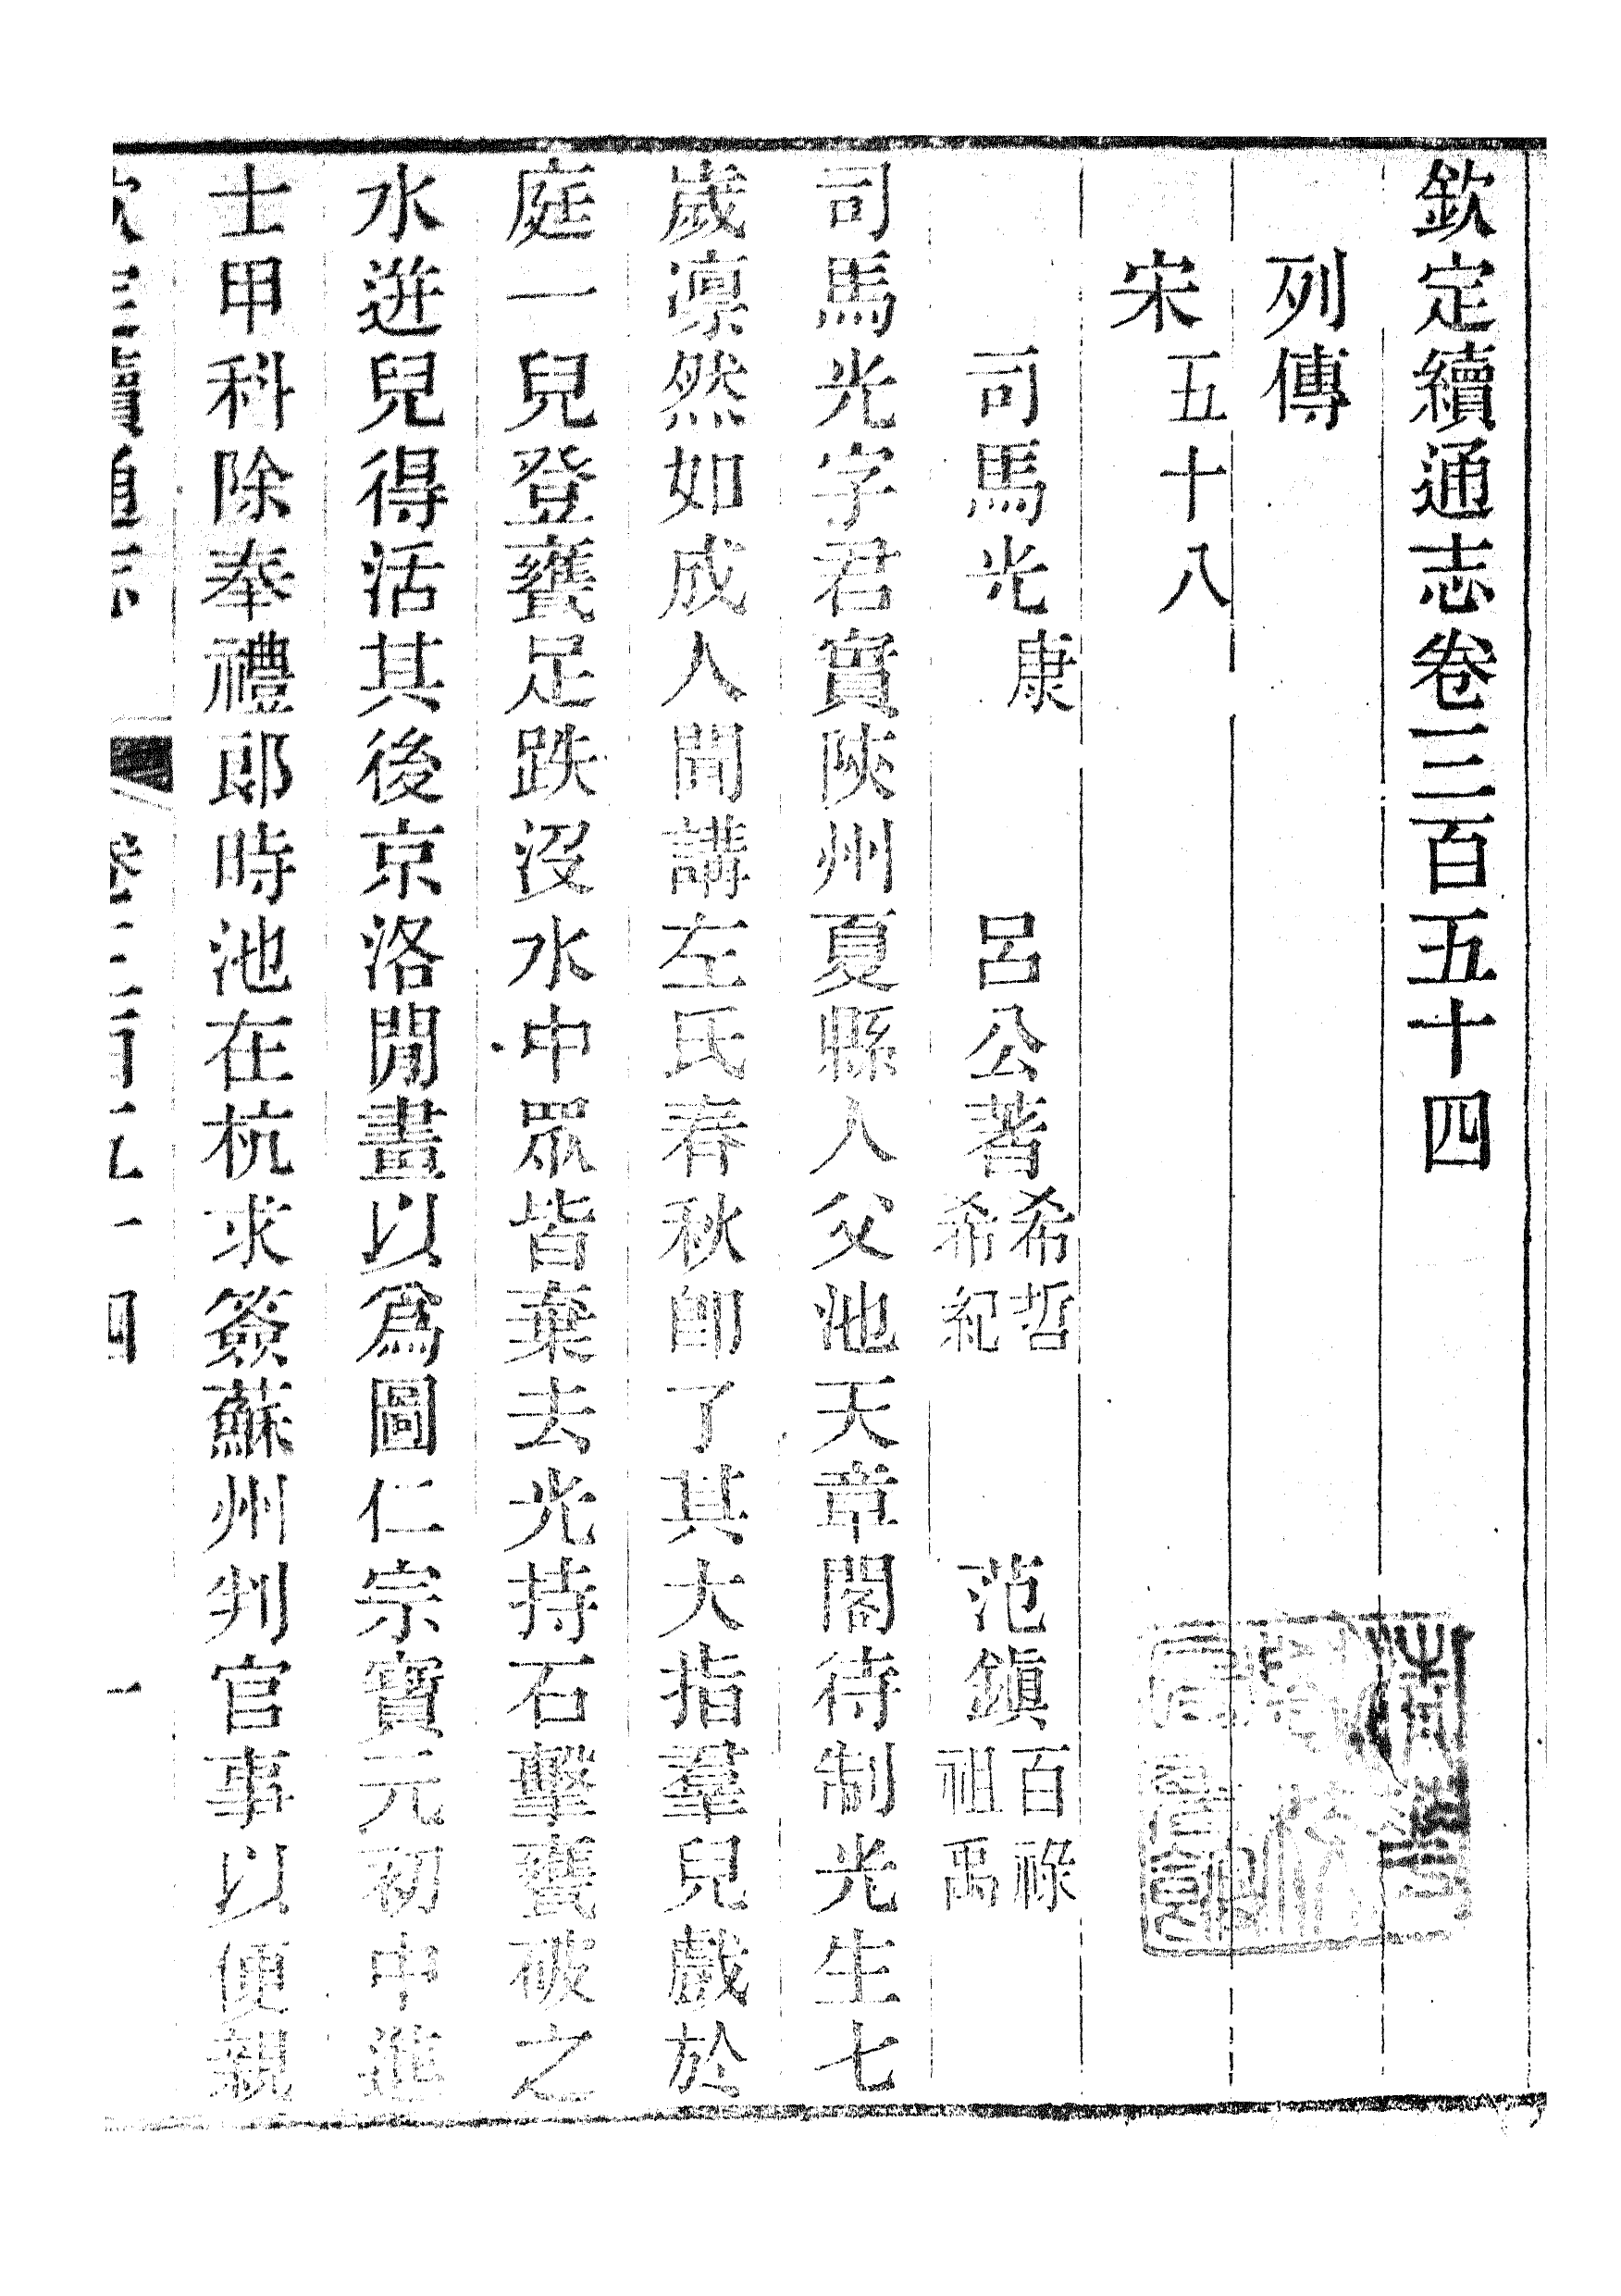 欽定續通志卷三百五十四
列傳
宋五十八
司馬光康 呂公著希哲希紀 范鎮百祿祖禹
司馬光字君實陜州夏縣人父池天章閣待制光生七
歲凛然如成人聞講左氏春秋卽了其大指羣兒戲於
庭一兒登甕足跌沒水中眾皆棄去光持石擊甕破之
水迸兒得活其後京洛閒畫以爲圖仁宗寶元初中進
士甲科除奉禮郎時池在杭求簽蘇州判官事以便親
欽定續通志 卷三百五十四 一